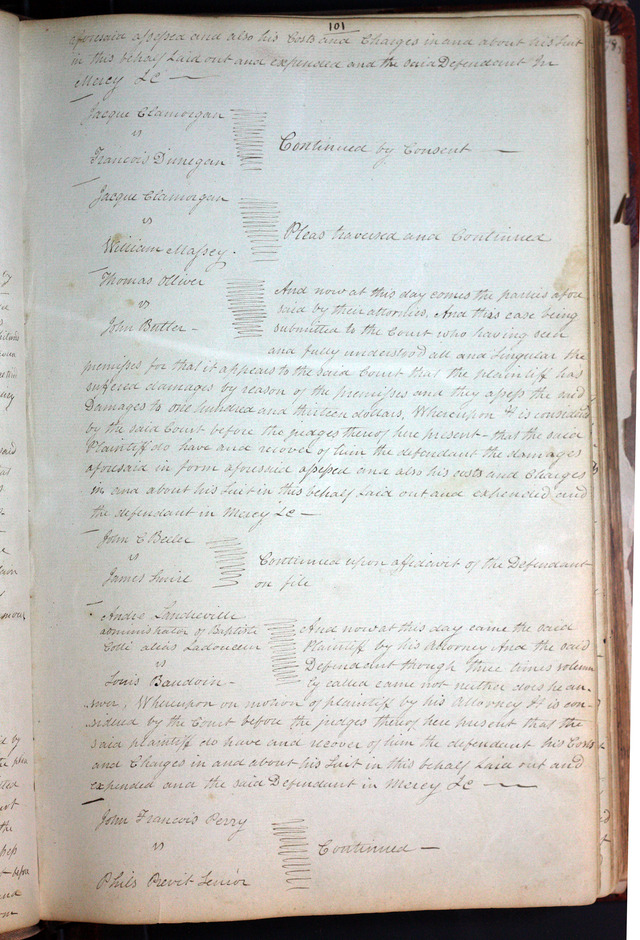 101
aforesaid assessed and also his Costs and Charges in and about his Suit
in this behalf Laid out and expended and the said Defendant In
Mercy &c —
Jacque Clamorgan
vs
Francois Dunegan
Continued by Consent —
Jacque Clamorgan
vs
William Massey.
Pleas traversed and Continued
Thomas Olliver
vs
John Butler –
And now at this day comes the parties afore
said by their attornies. And this case being
submitted to the Court who having seen
and fully understood all and Singular the
premisses for that it appears to the said Court that the plaintiff has
suffered damages by reason of the premisses and they assess the said
Damages to one hundred and thirteen dollars, Whereupon it is considered
by the said Court before the judges thereof here present – that the said
Plaintiff do have and recover of him the defendant the damages
aforesaid in form aforesaid assessed and also his costs and Charges
in and about his Suit in this behalf Laid out and expended and
the defendant in Mercy &c —
John C Beeler
vs
James
Continued upon affidavit of the Defendant
on file
Andre Landreville
administrator of Baptiste
alias Ladouceur
vs
Louis Baudoin –
And now at this day came the said
Plaintiff by his Attorney And the said
Defendant though three times solemn
ly called came not neither does he an-
swer, Whereupon on motion of plaintiff by his Attorney it is con-
sidered by the Court before the judges thereof here present that the
said plaintiff do have and recover of him the defendant his Costs
and Charges in and about his Suit in this behalf Laid out and
expended and the said Defendant in Mercy &c —
John Francois Perry
vs
Previt Senior
Continued —